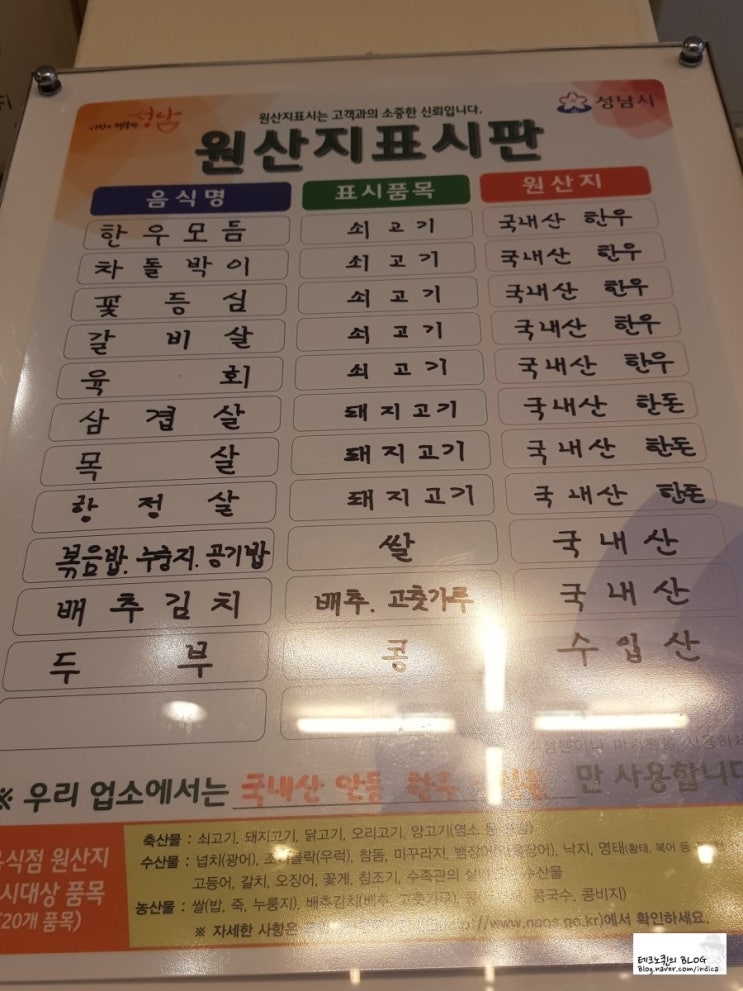 성남
원산지표시는 고객과의 소중한 신뢰입니다.
성남시
원산지표시판
음식명 표시품목 원산지
한우모듬 쇠고기 국내산 한우
차돌박이 쇠고기 국내산 한우
꽃등심 쇠고기 국내산 한우
갈비살 쇠고기 국내산 한우
육회 쇠고기 국내산 한우
삼겹살 돼지고기 국내산 한돈
목살 돼지고기 국내산 한돈
항정살 돼지고기 국내산 한돈
볶음밥. 누룽지. 공기밥 쌀 국내산
배추김치 배추. 고춧가루 국내산
두부 콩 수입산
※ 우리 업소에서는 국내산 한우 만 사용합니다
음식점 원산지
표시대상 품목
(20개 품목)
축산물 : 쇠고기, 돼지고기, 닭고기, 오리고기, 양고기(염소
수산물 : 넙치(광어), 조피볼락(우럭), 참돔, 미꾸라지, 뱀장어, 낙지, 명태(황태, 북어 등
고등어, 갈치, 오징어, 꽃게, 참조기, 수족관의 수산물
농산물 : 쌀(밥, 죽, 누룽지), 배추김치(배추, 고춧가루), 콩국수, 콩비지)
※ 자세한 사항은 http://www.naqs.go.kr)에서 확인하세요.
테크노퀸의 BLOG
Blog.naver.com/indica